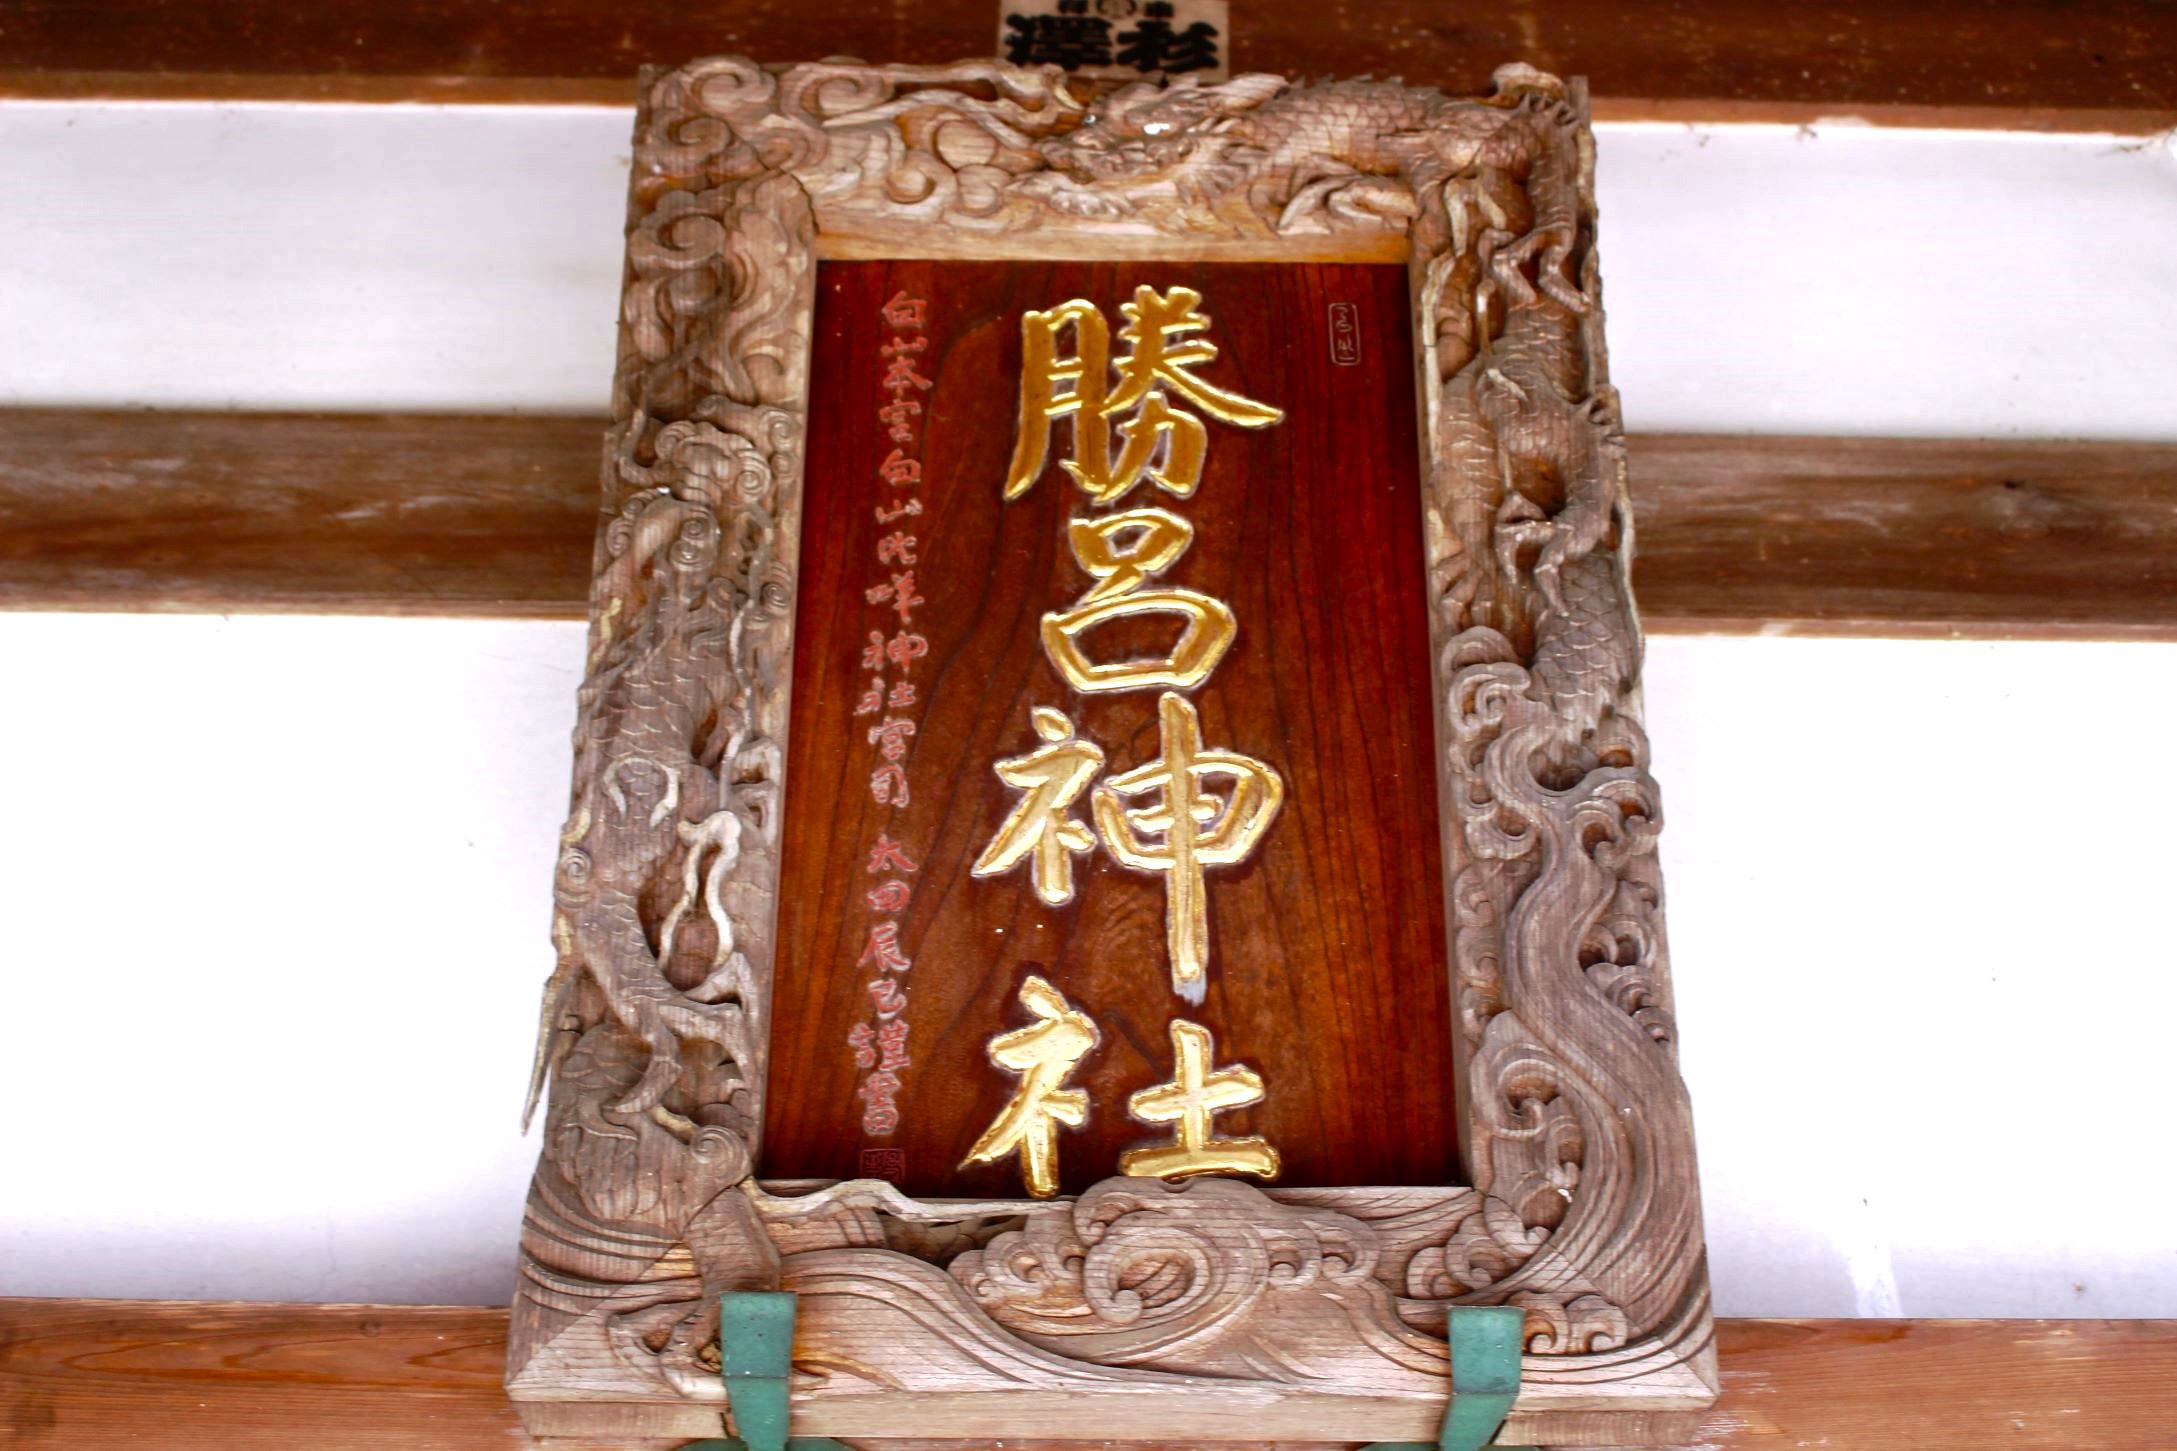 勝呂神社
白山本宮白山比咩神社宮司 太田辰巳謹書